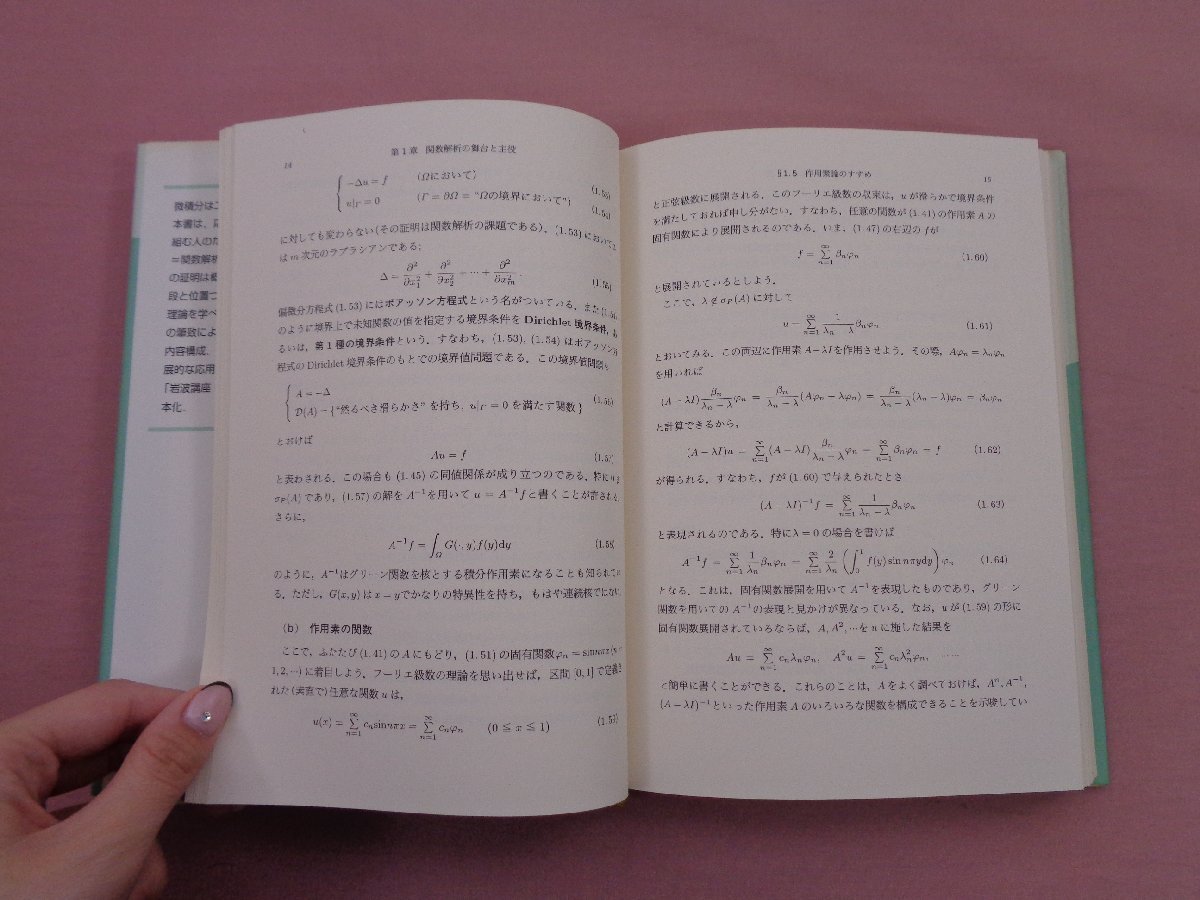 微積分は
本書は、
組む人のた
＝関数解析
の証明は
段と位置
理論を学べ
の筆致によ
内容構成．
展的な応用
「岩波講座
本化．
14
第1章 関数解析の舞台と主役
−Δu = f （Ωにおいて） (1.53)
u|Γ = 0 (Γ = ∂Ω = “Ωの境界において”) (1.54)
に対しても変わらない(その証明は関数解析の課題である)．(1.53)において
は m 次元のラプラシアンである：
Δ = ∂²/∂x₁² + ∂²/∂x₂² + ⋯ + ∂²/∂xₘ². (1.55)
偏微分方程式 (1.53) にはポアッソン方程式という名がついている．また
のように境界上で未知関数の値を指定する境界条件を Dirichlet 境界条件，あ
るいは，第1種の境界条件という．すなわち，(1.53)，(1.54) はポアッソン方
程式の Dirichlet 境界条件のもとでの境界値問題である．この境界値問題
A = −Δ
D(A) = {“然るべき滑らかさ” を持ち，u|Γ = 0 を満たす関数} (1.56)
とおけば
Au = f (1.57)
と表わされる．この場合も (1.45) の同値関係が成り立つのである．特に
σP(A) であり，(1.57) の解を A⁻¹ を用いて u = A⁻¹f と書くことが許される．
さらに，
A⁻¹f = ∫Ω G(·, y)f(y)dy (1.58)
のように，A⁻¹はグリーン関数を核とする積分作用素になることも知られてい
る．ただし，G(x, y) は x = y でかなりの特異性を持ち，もはや連続核ではない．
(b) 作用素の関数
ここで，ふたたび (1.41) の A にもどり，(1.51) の固有関数 φₙ = sin nπx (n =
1, 2, ⋯) に着目しよう．フーリエ級数の理論を思い出せば，区間 [0, 1] で定義さ
れた(実数値で)任意な関数 u は，
u(x) = ∑ₙ₌₁^∞ cₙ sin nπx = ∑ₙ₌₁^∞ cₙφₙ (0 ≦ x ≦ 1) (1.59)
§1.5 作用素論のすすめ
15
と正弦級数に展開される．このフーリエ級数の収束は，u が滑らかで境界条件
を満たしておれば申し分がない．すなわち，任意の関数が (1.41) の作用素 A の
固有関数により展開されるのである．いま，(1.47) の右辺の f が
f = ∑ₙ₌₁^∞ βₙφₙ (1.60)
と展開されているとしよう．
ここで，λ ∉ σP(A) に対して
u = ∑ₙ₌₁^∞ 1/(λₙ − λ) βₙφₙ (1.61)
とおいてみる．この両辺に作用素 A−λI を作用させよう．その際，Aφₙ = λₙφₙ
を用いれば
(A − λI) βₙ/(λₙ − λ) φₙ = βₙ/(λₙ − λ) (Aφₙ − λφₙ) = βₙ/(λₙ − λ) (λₙ − λ)φₙ = βₙφₙ
と計算できるから，
(A − λI)u = ∑ₙ₌₁^∞ (A − λI) βₙ/(λₙ − λ) φₙ = ∑ₙ₌₁^∞ βₙφₙ = f (1.62)
が得られる．すなわち，f が (1.60) で与えられたとき
(A − λI)⁻¹f = ∑ₙ₌₁^∞ 1/(λₙ − λ) βₙφₙ (1.63)
と表現されるのである．特に λ = 0 の場合を書けば
A⁻¹f = ∑ₙ₌₁^∞ 1/λₙ βₙφₙ = ∑ₙ₌₁^∞ 2/λₙ (∫₀¹ f(y) sin nπy dy) φₙ (1.64)
となる．これは，固有関数展開を用いて A⁻¹ を表現したものであり，グリーン
関数を用いての A⁻¹ の表現と見かけが異なっている．なお，u が (1.59) の形に
固有関数展開されているならば，A, A², ⋯ を u に施した結果を
Au = ∑ₙ₌₁^∞ cₙλₙφₙ, A²u = ∑ₙ₌₁^∞ cₙλₙ²φₙ, ⋯⋯
と簡単に書くことができる．これらのことは，A をよく調べておけば，Aⁿ, A⁻¹,
(A − λI)⁻¹ といった作用素 A のいろいろな関数を構成できることを示唆してい